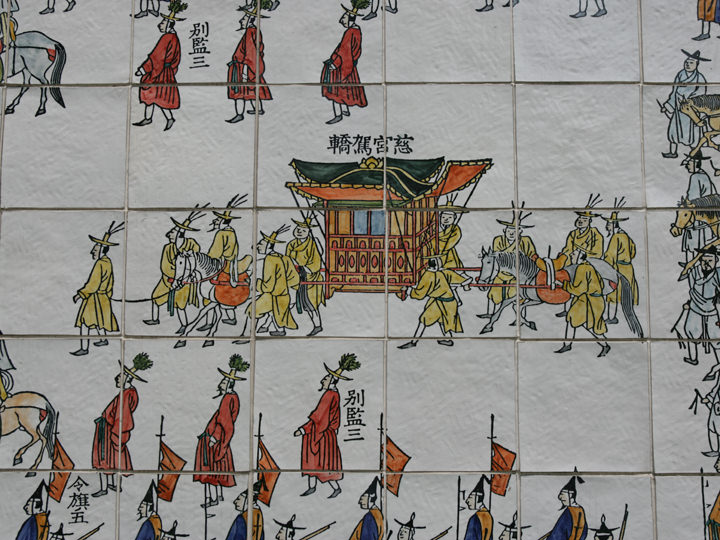 別監三
慈宮駕轎
別監三
令旗五